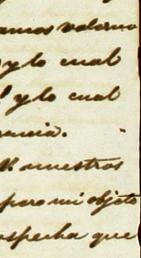 amos valerno
y lo cual
y lo cual
rencia.
R. nuestros
pero mi objeto
ospecha que